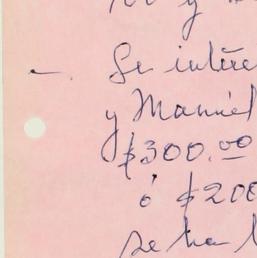 y
- Se intere
y Manuel
$300.00
ó $200
se ha